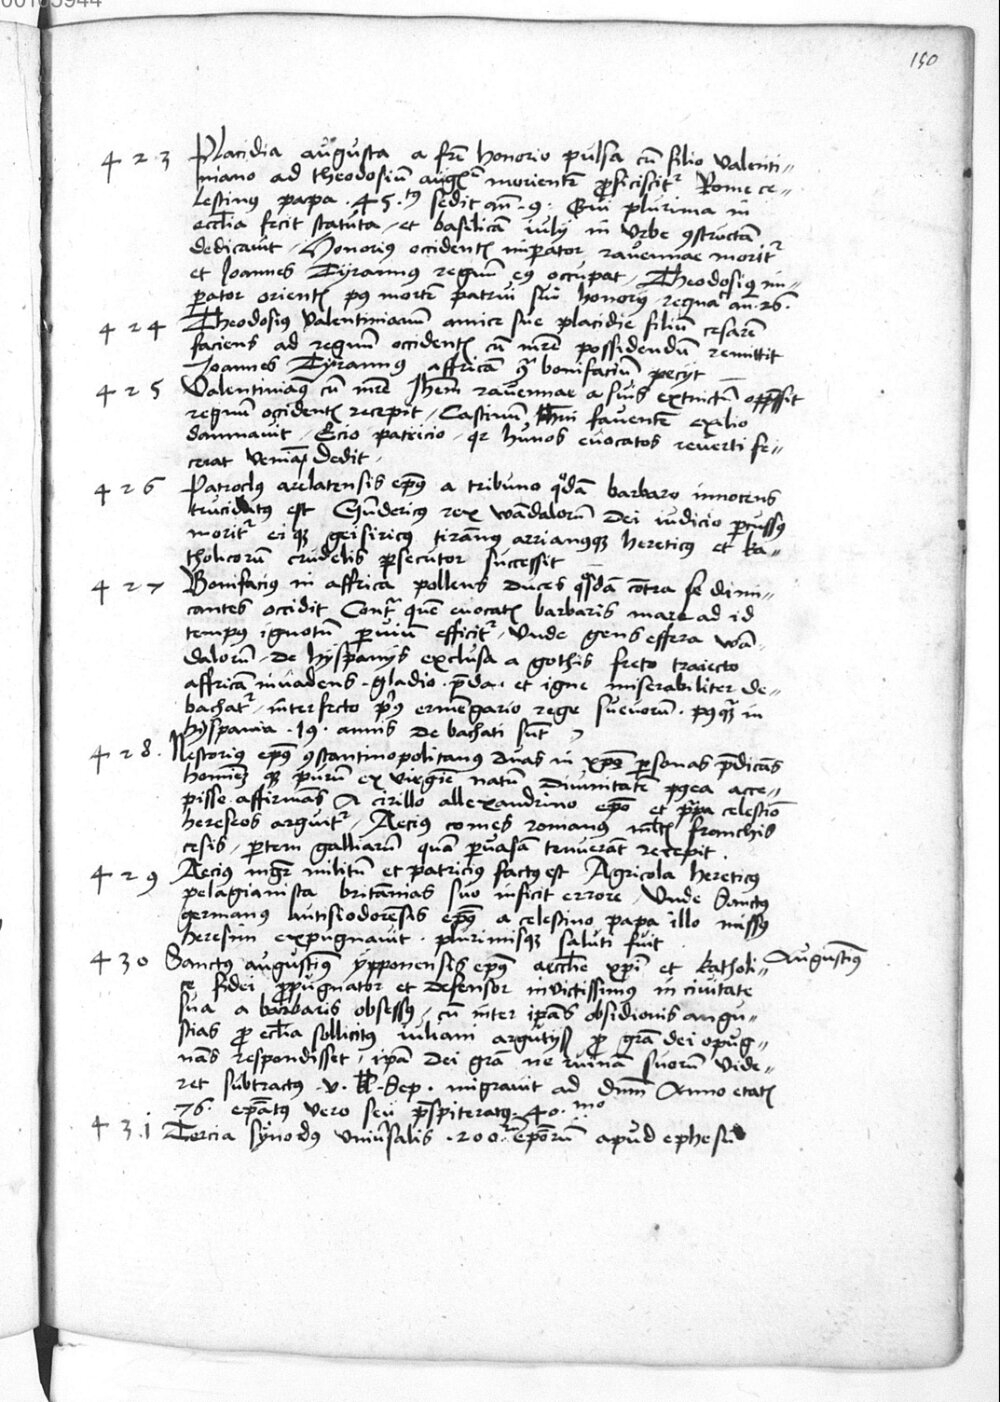 00103944
150
423 Placidia augusta a fr̄e honorio pulsa cū filio valenti-
niano ad theodosiū augᵐ orientē ꝓficiscitʳ Rome ce-
lestinus papa .45.ᵗᵘˢ sedit an̄ .9. Qui plurima in
ecclīa fecit statuta, et basilicā iulij in vrbe ꝯstructā
dedicauit, Honoriꝯ occidentꝭ imperator rauennae moritʳ
et Joannes Tyrannus regnū eꝯ occupat, Theodosiꝯ im-
perator orientꝭ pꝯ mortē patrui sui honorij regnat an̄ .26.
424 Theodosiꝯ Valentinianū amice sue placidie filiū cesarē
faciens ad regnū occidentꝭ cū mr̄e possidendū remittit
Joannes Tyrannꝯ affricā ꝗ̄ bonifaciū pecijt
425 Valentinianꝯ cū mr̄e Joh̄em rauennae a suis extinctū opp̄ssit
regnū occidentꝭ recepit, Castinum fauentē exilio
damnauit, Ecio patricio, qr hunos euocatos reuerti fe-
cerat veniā dedit,
426 Patroclꝯ arelatensis ep̄ꝯ a tribuno qͦdā barbaro innocens
trucidatꝯ est Gūdericꝯ rex wandalorū Dei iudicio ꝑcussꝯ
moritʳ eiqꝫ geisiricꝯ tirannꝯ arrianꝯqꝫ hereticꝯ et ka-
tholicorū crudelis ꝑsecutor successit
427 Bonifacius in affrica pollens duces qͦsdā cōtra se dimi-
cantes occidit Contʳ quē euocatꝭ barbaris mare ad id
tempꝯ ignotū ꝑuiū efficitʳ, Vnde gens effera wā-
dalorū, de hyspanijs exclusa a gothis freto traiecto
affricā inuadens, gladio, p̄da, et igne miserabiliter de-
bachatʳ, interfecto pͥꝯ ermengario rege sueuorū, pꝯqͣ in
hyspania .19. annis de bachati sūt
428. Nestoriꝯ ep̄ꝯ ꝯstantinopolitanꝯ duas in xp̄o ꝑsonas p̄dicās
hominēqꝫ purū ex virgīe natū diuinitatē pꝯea acce-
pisse affirmās A cirillo allexandrino ep̄o et papa celestīo
hereseos arguitʳ, Aeciꝯ comes romanꝯ ml̄tꝭ franchis
cesis, ꝑtem galliarū quā ꝑuasā tenuerāt recepit.
429 Aeciꝯ mgr̄ militū et patriciꝯ factꝯ est Agricola hereticꝯ
pelagianista britannias suo inficit errore, Vnde Sanctꝯ
germanꝯ autisiodorēsis ep̄ꝯ a celestino papa illo missꝯ
heresim expugnauit, plurimisqꝫ saluti fuit
430 Sanctꝯ augustinꝯ ypponensis ep̄ꝯ aecclīe xp̄i et katholi- Augustinꝯ
ce fidei ꝓpugnator et defensor invictissimꝯ in civitate
sua a barbaris obsessꝯ, cū inter ip̄as obsidionis angu-
stias pro ecclīa sollicitꝯ iuliani argutijs pro gr̄a dei opug-
nās respondisset, ip̄a Dei gr̄a ne ruinā suorū vide-
ret subtractꝯ .v. kl̄. Sep. migrauit ad dn̄m Anno etatꝭ
76. ep̄atꝯ vero seu p̄sbiteratꝯ .40.ᵐᵒ
431 Tercia synodꝯ vniūsalis .200.ᵘᵐ ep̄orū apud ephesū